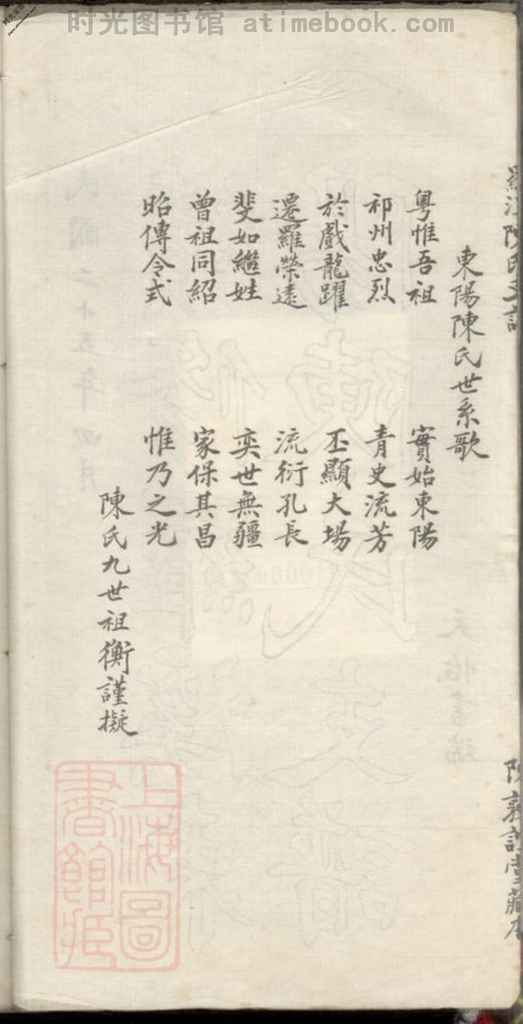 时光图书馆 atimebook.com
東陽陳氏世系歌
粵惟吾祖 實始東陽
祁州忠烈 青史流芳
於戲龍躍 丕顯大場
遷羅榮遠 流衍孔長
斐如繼姓 奕世無疆
曾祖同紹 家保其昌
昭傳令式 惟乃之光
陳氏九世祖衡謹擬
上海圖
書館藏